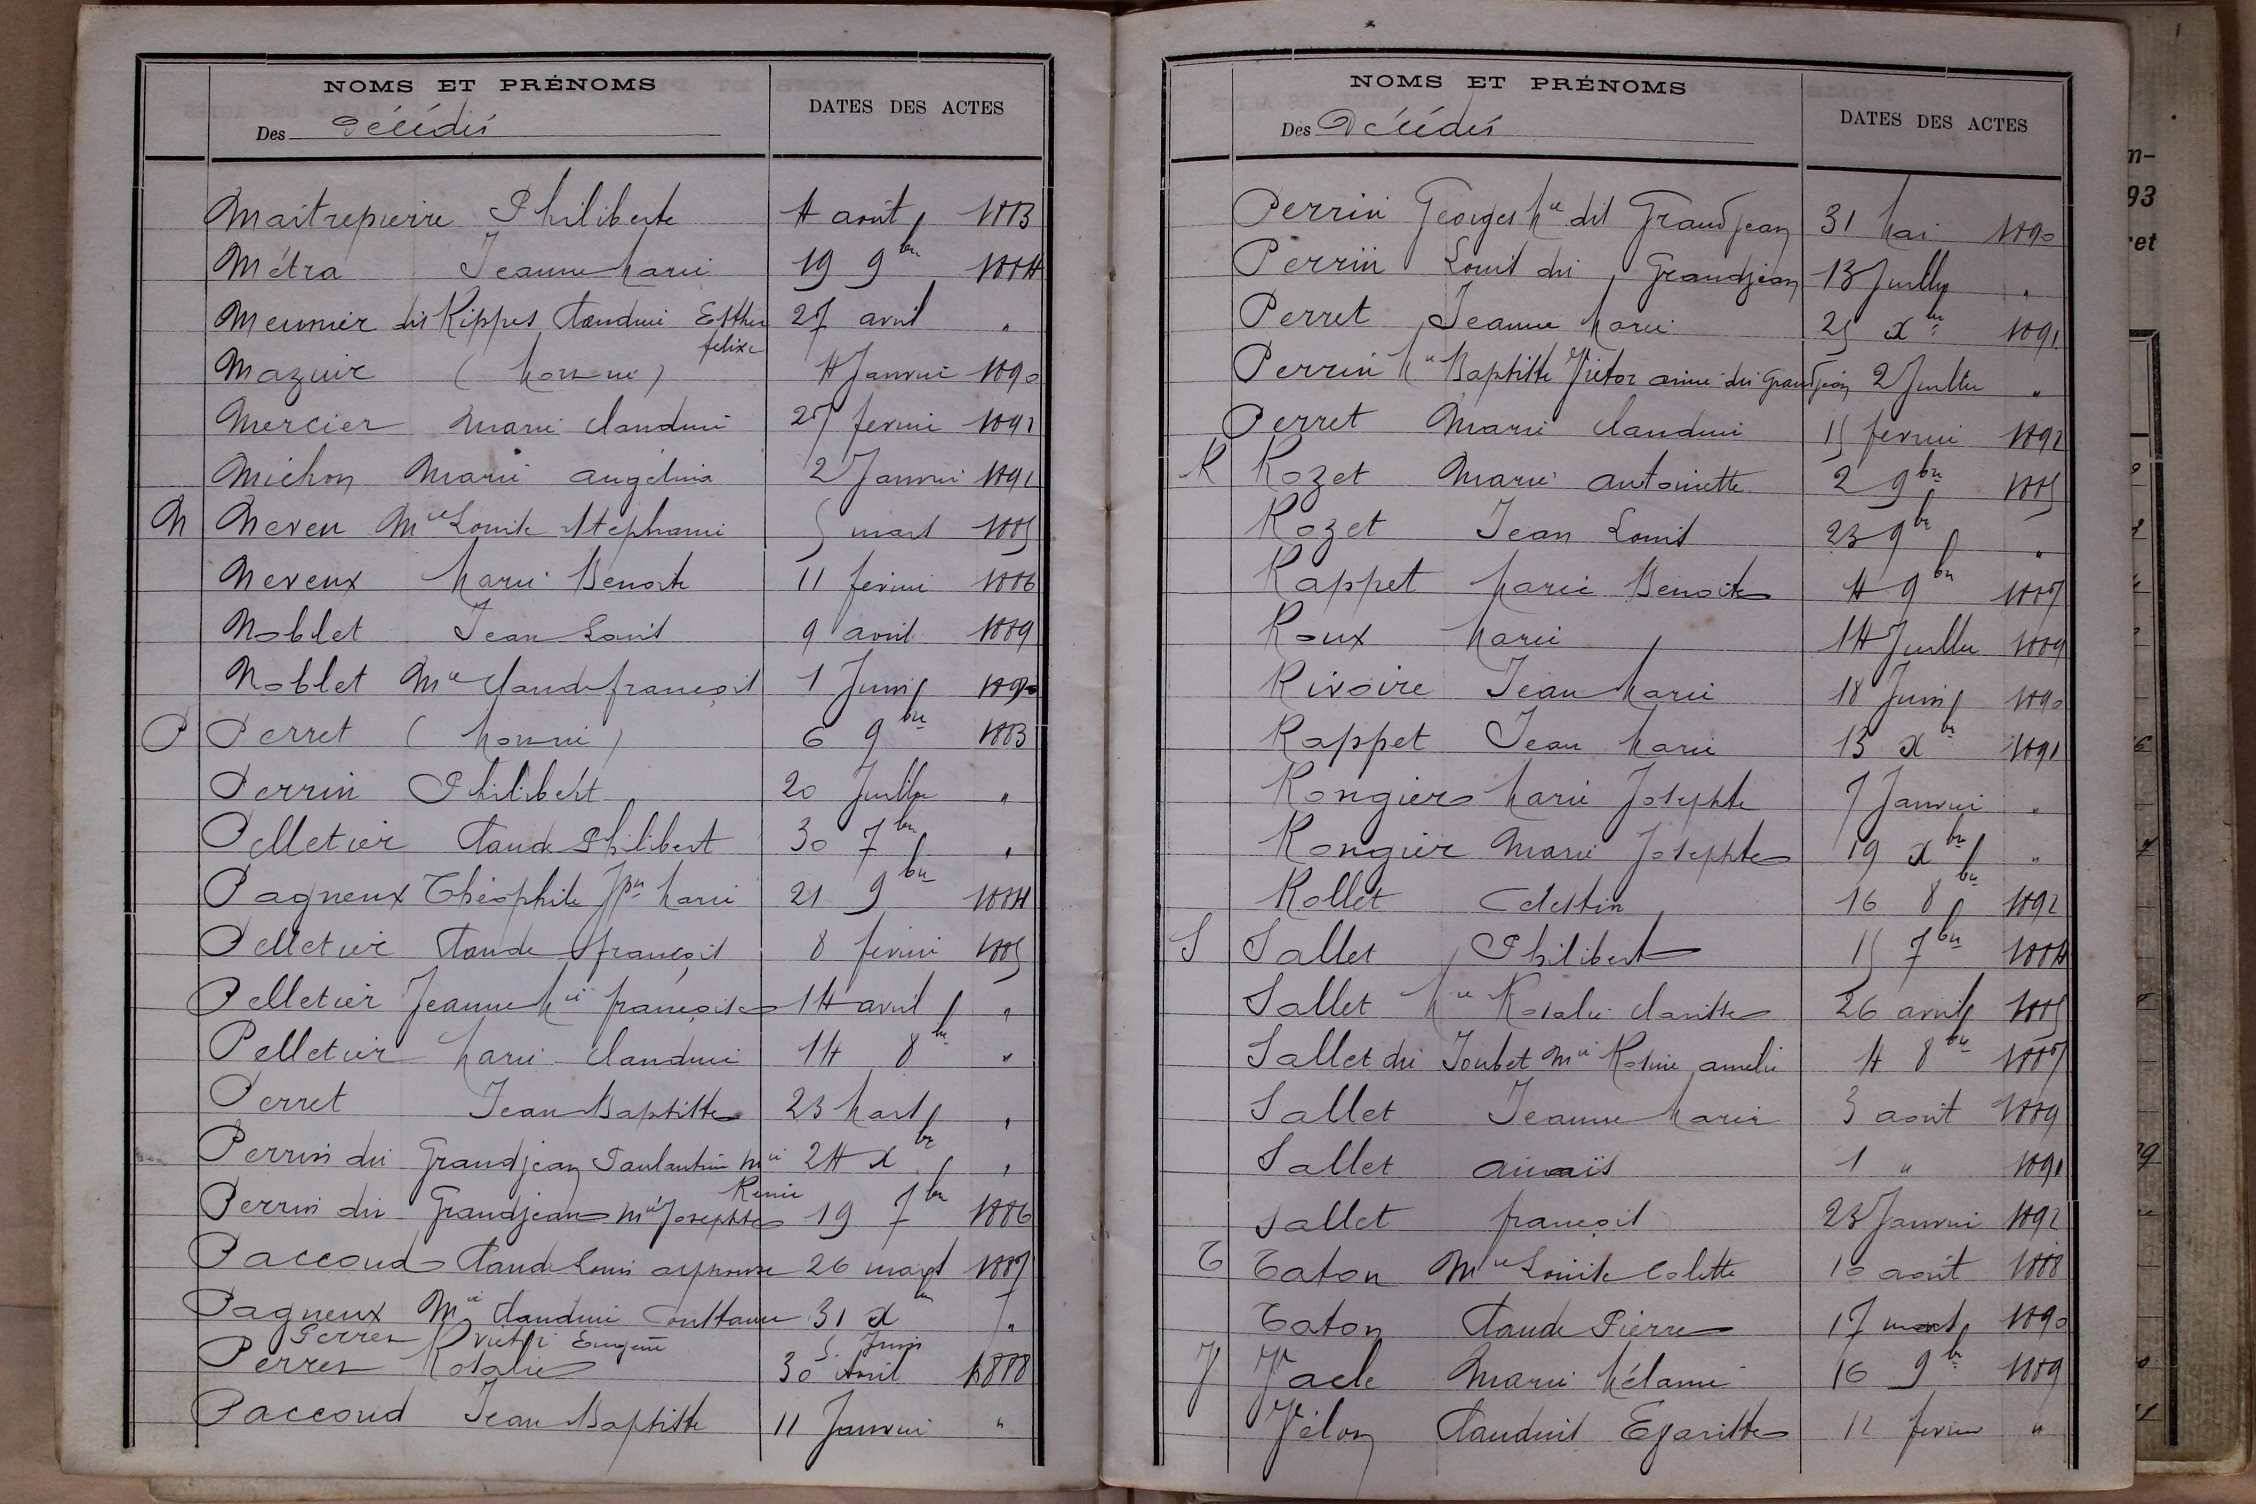 NOMS ET PRÉNOMS
Des Décédés
DATES DES ACTES
Maitrepierre Philiberte 4 août 1883
Métra Jeanne Marie 19 9bre 1884
Meunier dit Rippes Claudine Esther 27 avril "
felixe
Mazuir (homme) 4 Janvier 1890
Mercier Marie Claudine 27 fevrier 1891
Michon Marie Angélina 2 Janvier 1891
N Neveu Mie Louise Stephanie 5 mars 1885
Neveux Marie Benoite 11 fevrier 1886
Noblet Jean Louis 9 avril 1889
Noblet Mie Claude françois 1 Juin 1890
P Perret (homme) 6 9bre 1883
Perrin Philibert 20 Juillet "
Pelletier Claude Philibert 30 7bre "
Pagneux Théophile Jph Marie 21 9bre 1884
Pelletier Claude françois 8 fevrier 1885
Pelletier Jeanne Mie françoise 14 avril "
Pelletier Marie Claudine 14 8bre "
Perret Jean Baptiste 23 Mars "
Perrin dit Grandjean Mie 24 xbre "
Renée
Perrin dit Grandjean Mie Josephte 19 7bre 1886
Paccoud Claude Louis alphonse 26 mars 1887
Pagneux Mie Claudine Constance 31 xbre "
Perret Eugène 5 Juin
Perret Rosalie 30 Avril 1888
Paccoud Jean Baptiste 11 Janvier "
NOMS ET PRÉNOMS
Des Décédés
DATES DES ACTES
Perrin Georges Mie dit Grandjean 31 Mai 1890
Perrin Louis dit Grandjean 13 Juillet "
Perret Jeanne Marie 25 xbre 1891
Perrin Mie Baptiste Victor aimé dit Grandjean 2 Juillet "
Perret Marie Claudine 15 fevrier 1892
R Rozet Marie Antoinette 2 9bre 1885
Rozet Jean Louis 23 9bre "
Rappet Marie Benoite 4 9bre 1887
Roux Marie 14 Juillet 1889
Rivoire Jean Marie 18 Juin 1890
Rappet Jean Marie 13 xbre 1891
Rongier Marie Josephte 7 Janvier "
Rongier Marie Josephte 19 xbre "
Rollet Celestin 16 8bre 1892
S Sallet Philibert 15 7bre 1884
Sallet Mie Rosalie Clarisse 26 avril 1885
Sallet dit Joubet Mie Rosine amelie 4 8bre 1887
Sallet Jeanne Marie 3 août 1889
Sallet Anaïs 1 " 1891
Sallet françois 23 Janvier 1892
T Taton Mie Louise Colette 10 août 1888
Taton Claude Pierre 17 mars 1890
V Vacle Marie Mélanie 16 9bre 1889
Vélon Claudius 12 fevrier "